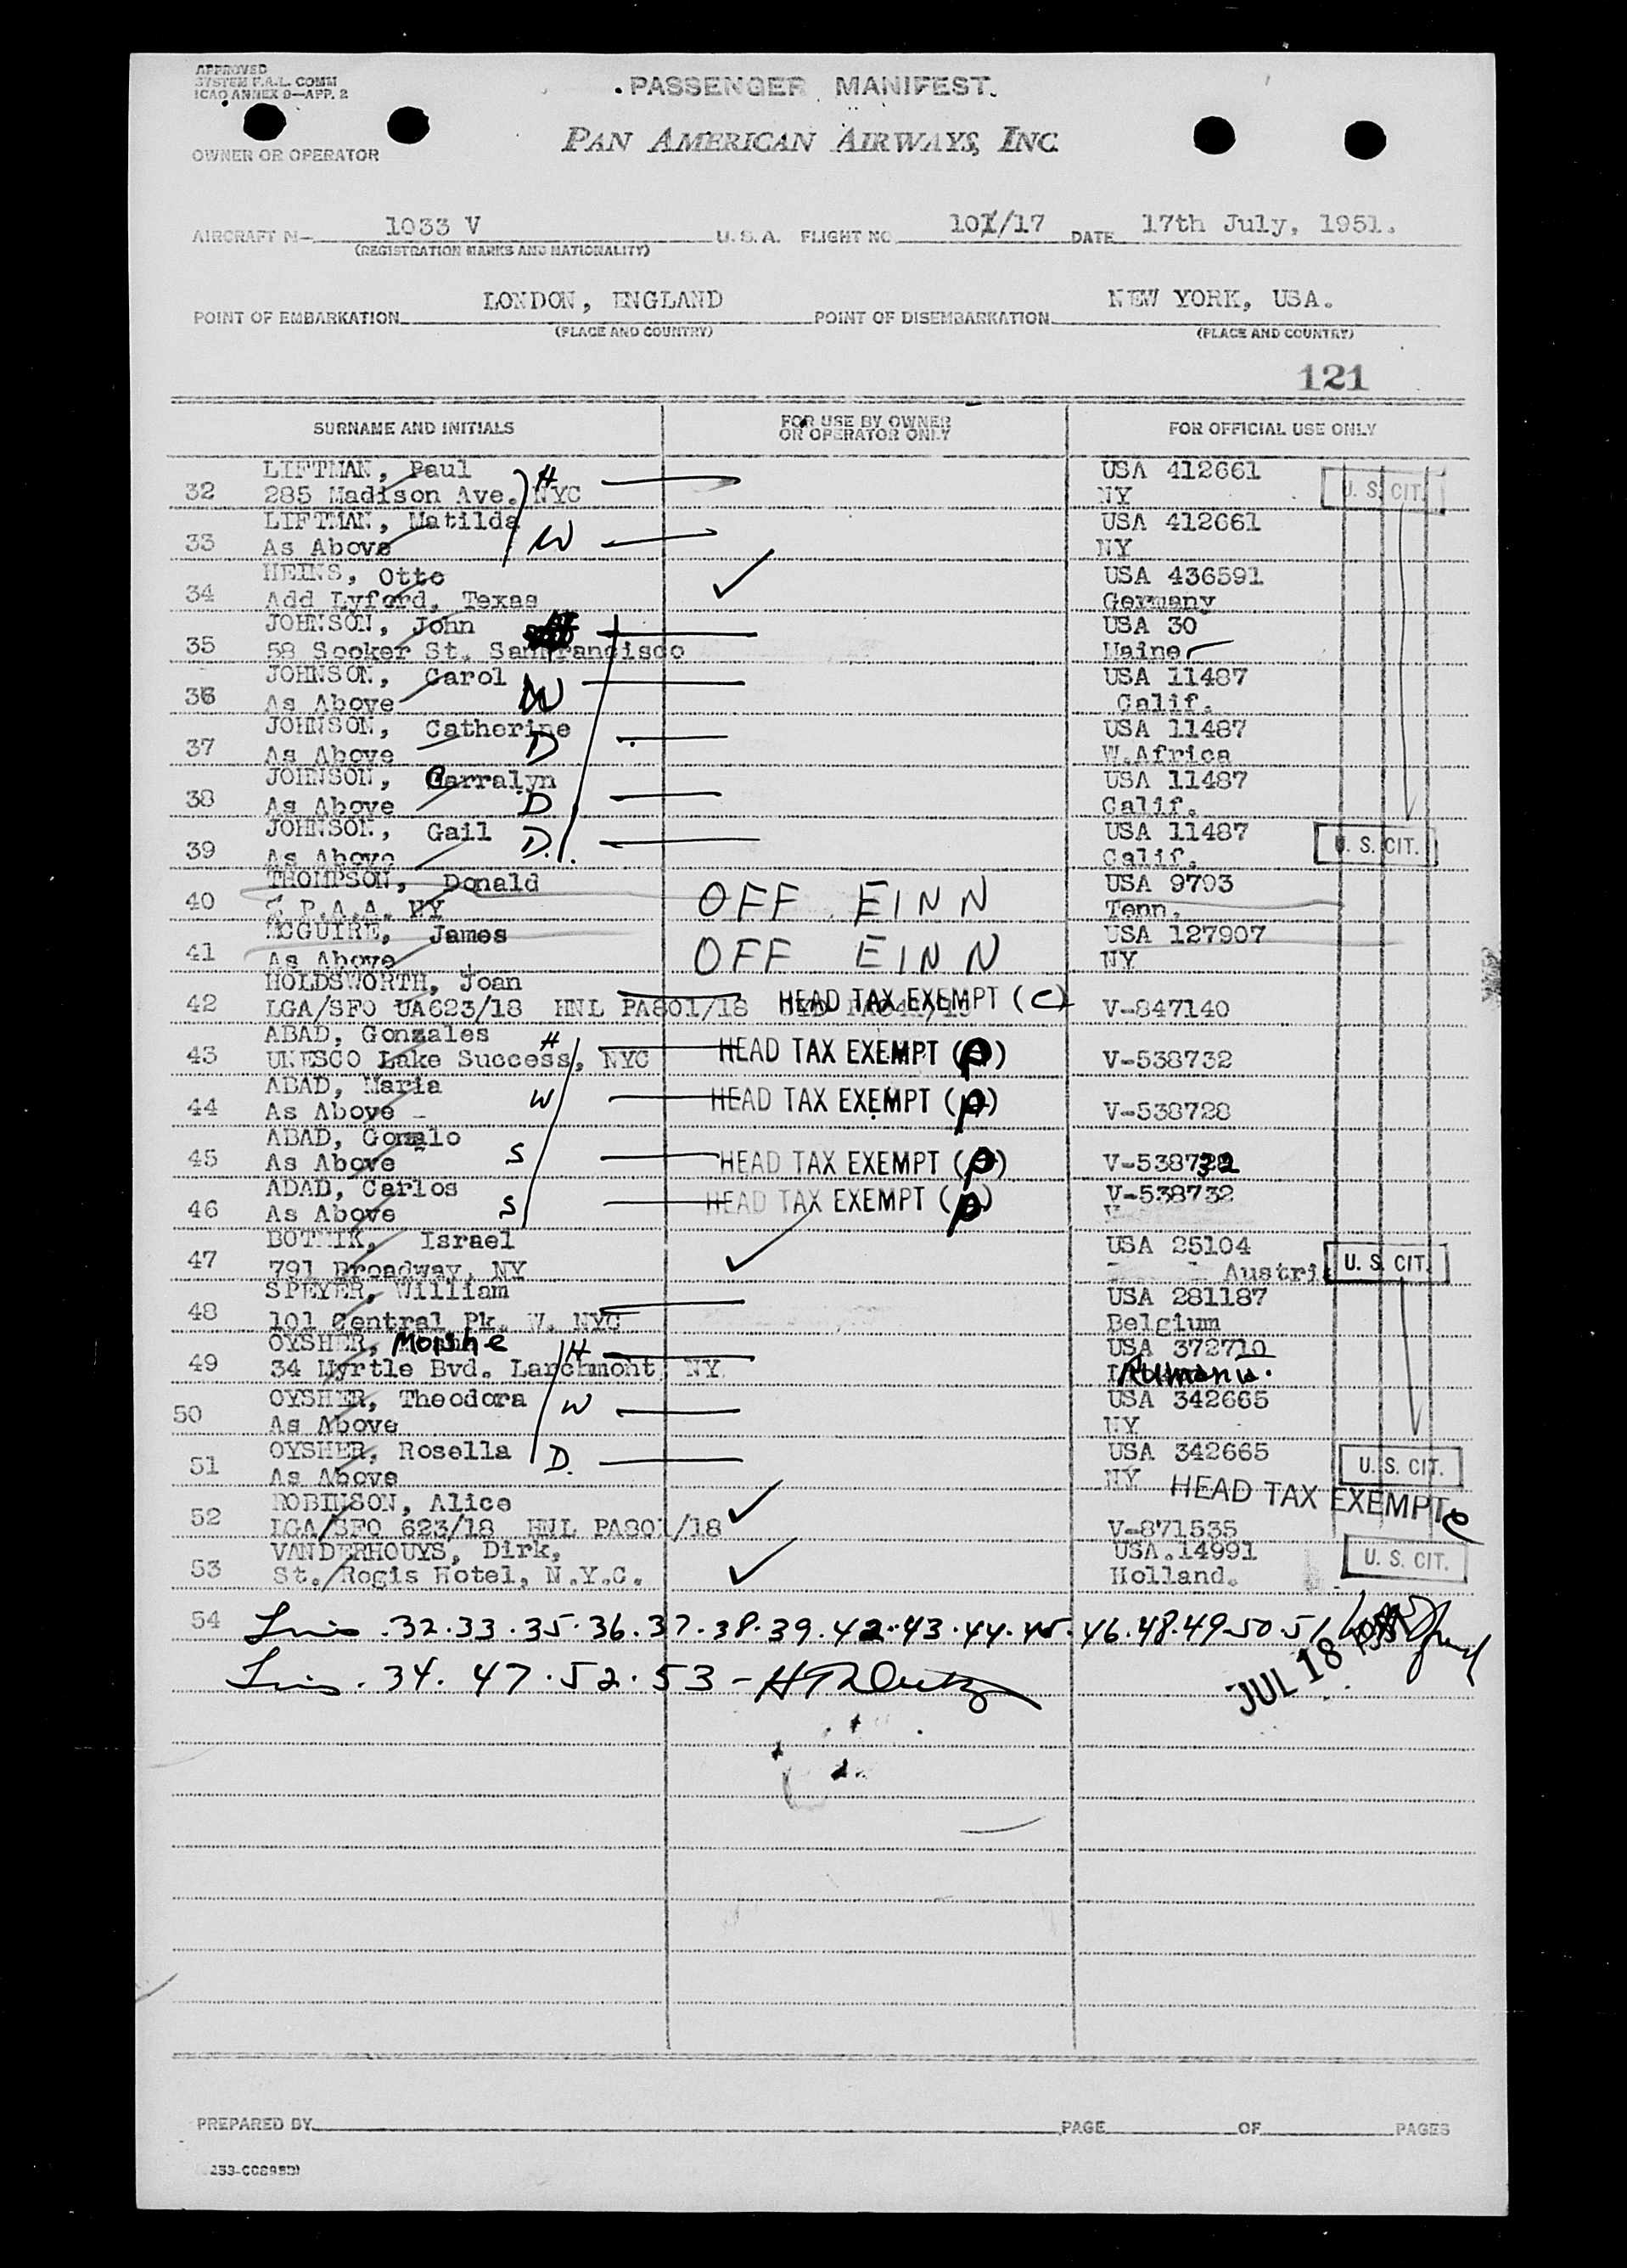 APPROVED
SYSTEM F.A.L. COMM
ICAO ANNEX 9—APP. 2
PASSENGER MANIFEST
OWNER OR OPERATOR
PAN AMERICAN AIRWAYS, INC.
AIRCRAFT N— 1033 V U. S. A. FLIGHT NO 101/17 DATE 17th July, 1951.
(REGISTRATION MARKS AND NATIONALITY)
POINT OF EMBARKATION LONDON, ENGLAND POINT OF DISEMBARKATION NEW YORK, USA.
(PLACE AND COUNTRY) (PLACE AND COUNTRY)
121
SURNAME AND INITIALS FOR USE BY OWNER OR OPERATOR ONLY FOR OFFICIAL USE ONLY
LIFTMAN, Paul H USA 412661
32 285 Madison Ave. NYC NY U. S. CIT.
LIFTMAN, Matilda USA 412661
33 As Above W NY
HEINS, Otto USA 436591
34 Add Lyford, Texas Germany
JOHNSON, John USA 30
35 58 Sooker St. San Francisco Maine
JOHNSON, Carol USA 11487
36 As Above W Calif.
JOHNSON, Catherine USA 11487
37 As Above D W.Africa
JOHNSON, Carralyn USA 11487
38 As Above D Calif.
JOHNSON, Gail USA 11487
39 As Above D. Calif. U. S. CIT.
THOMPSON, Donald USA 9793
40 P.A.A. NY OFF EINN Tenn.
MCGUIRE, James USA 127907
41 As Above OFF EINN NY
HOLDSWORTH, Joan
42 LGA/SFO UA623/18 HNL PA801/18 HEAD TAX EXEMPT (C) V-847140
ABAD, Gonzales H
43 UNESCO Lake Success, NYC HEAD TAX EXEMPT (P) V-538732
ABAD, Maria
44 As Above W HEAD TAX EXEMPT (P) V-538728
ABAD, Gonzalo
45 As Above S HEAD TAX EXEMPT (P) V-538732
ADAD, Carlos V-538732
46 As Above S HEAD TAX EXEMPT (P)
BOTNIK, Israel USA 25104
47 791 Broadway, NY Austria U. S. CIT.
SPEYER, William USA 281187
48 101 Central Pk. W. NYC Belgium
OYSHER, Moishe H USA 372710
49 34 Myrtle Bvd. Larchmont NY Rumania.
OYSHER, Theodora W USA 342665
50 As Above NY
OYSHER, Rosella USA 342665
51 As Above D. NY U. S. CIT.
HEAD TAX EXEMPT c
ROBINSON, Alice
52 LGA/SFO 623/18 HNL PA801/18 V-871535
VANDERHOUYS, Dirk, USA.14991
53 St. Regis Hotel, N.Y.C. Holland. U. S. CIT.
54 Lines .32.33.35.36.37.38.39.42.43.44.45.46.48.49.50.51
JUL 18
Lines. 34. 47.52.53 -
PREPARED BY PAGE OF PAGES